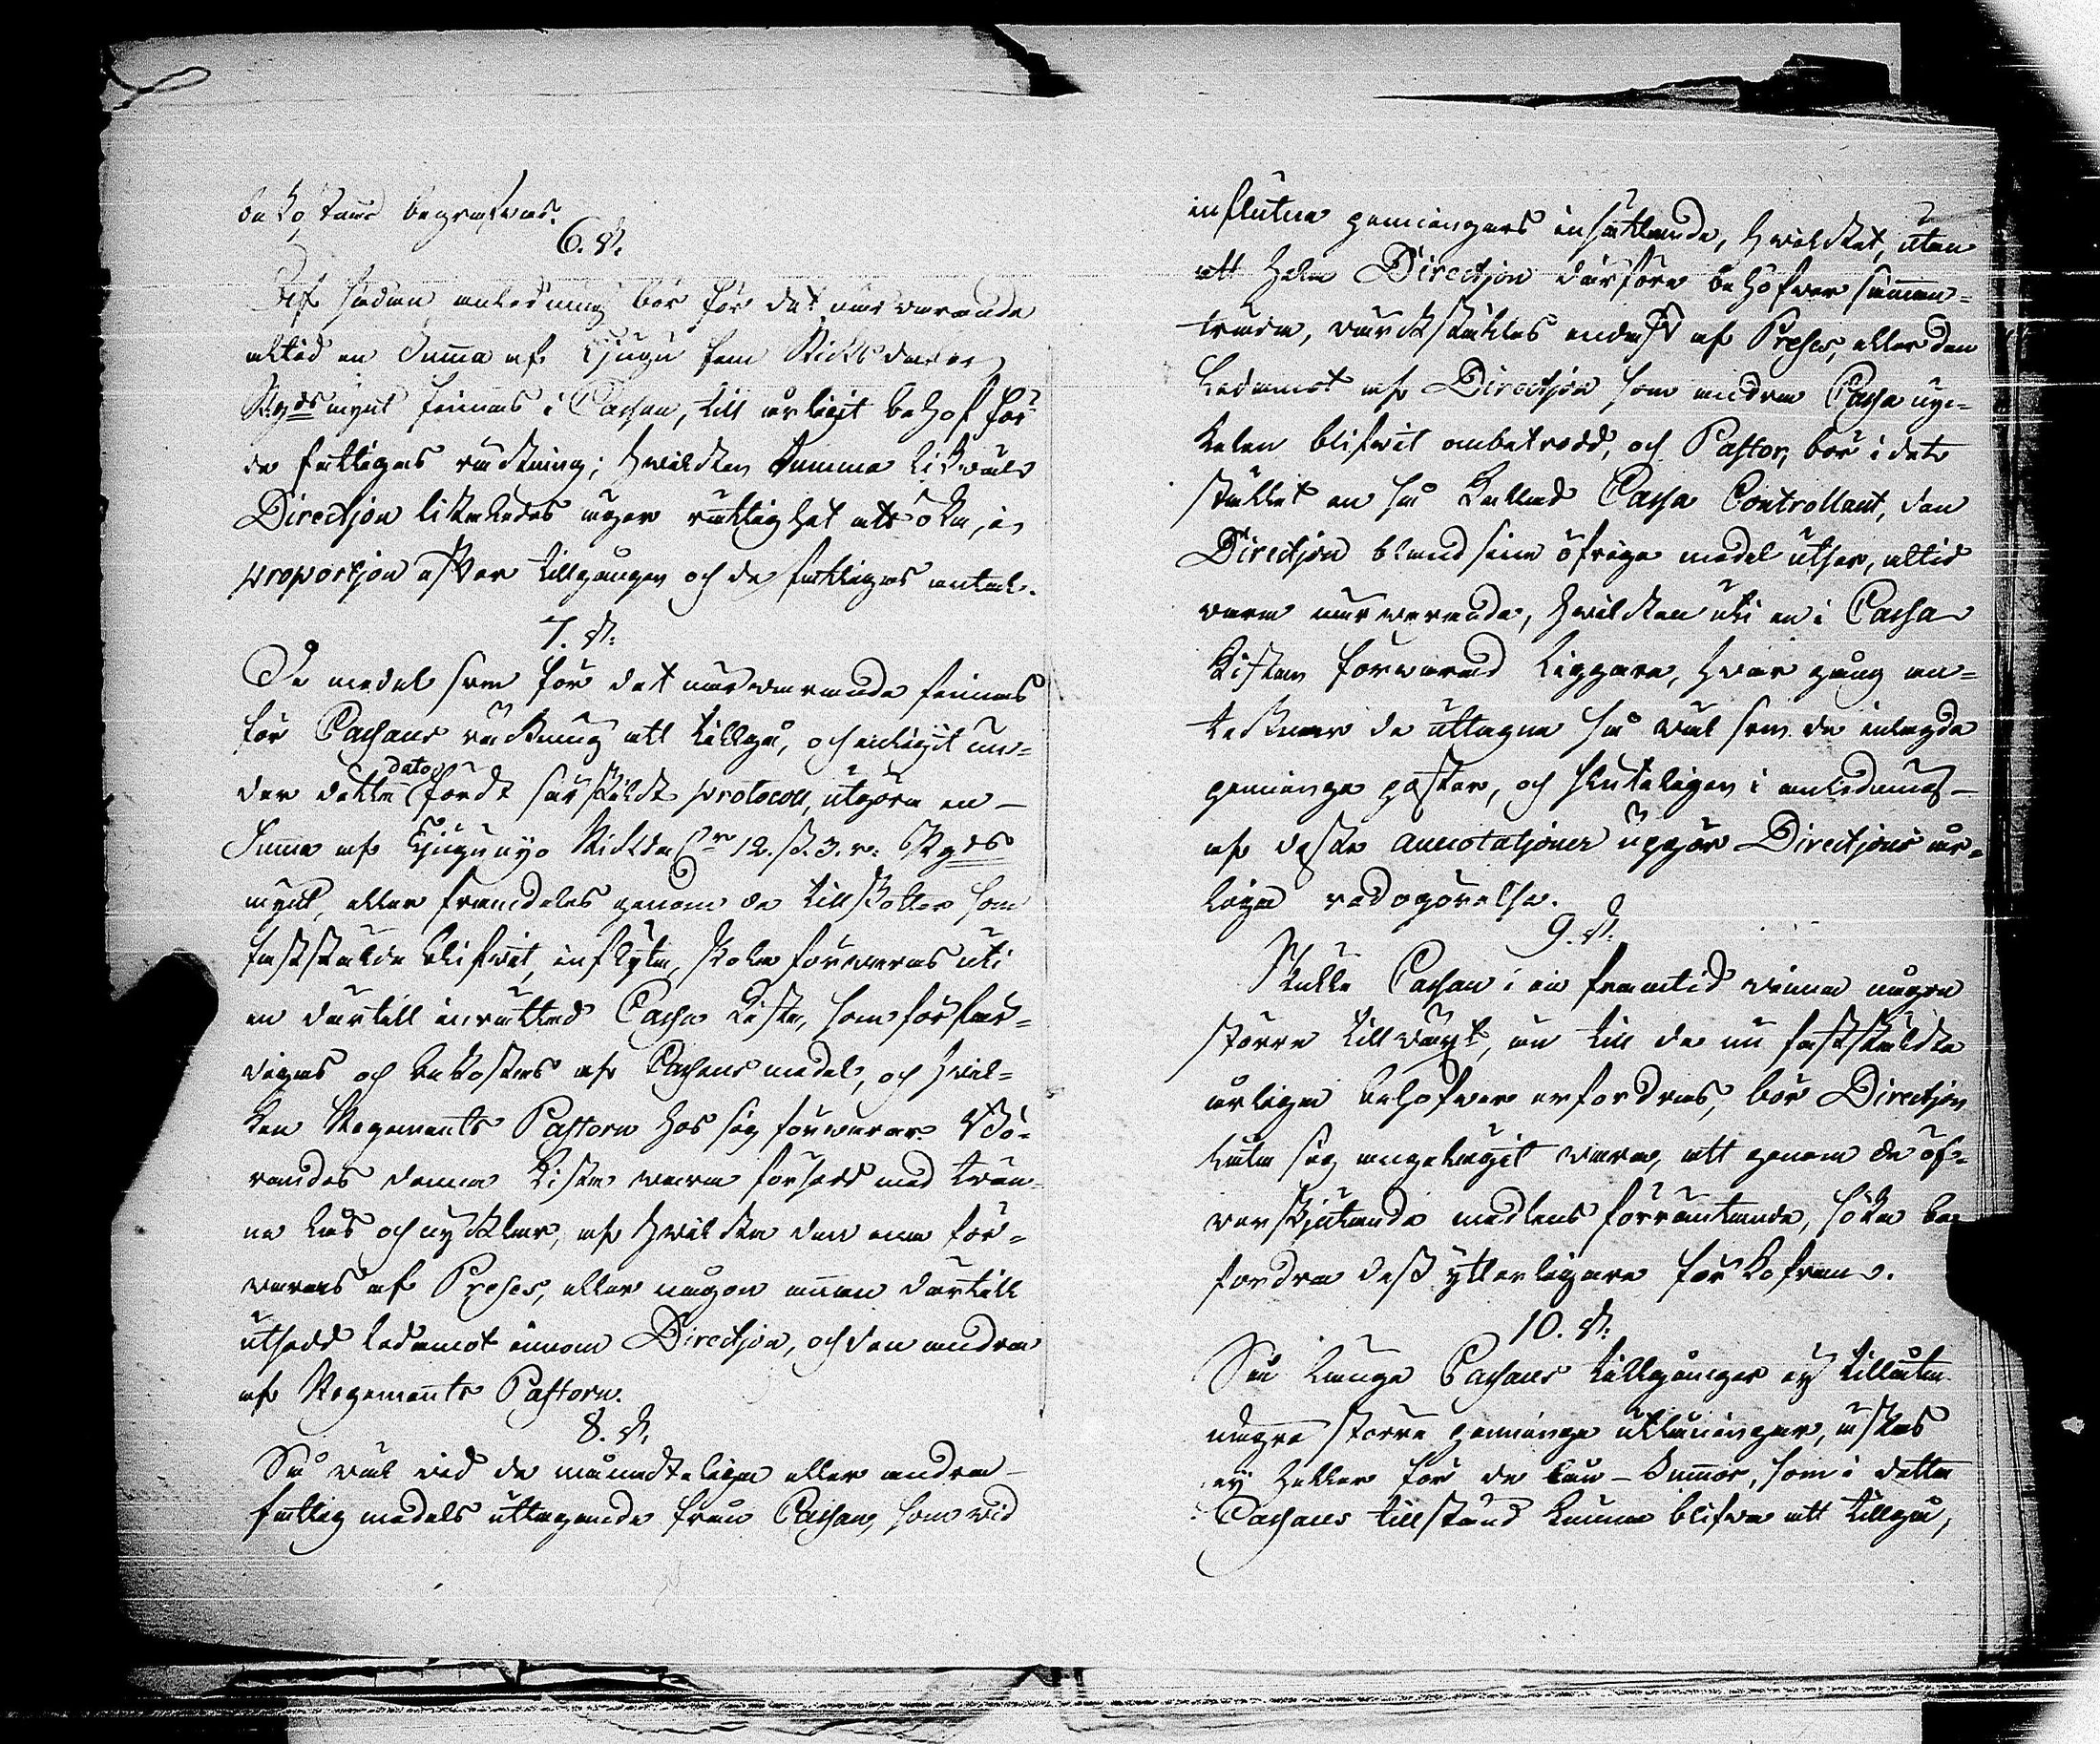 bekostnad begrafwas.
6. §.
Af sådan anledning bör för det närwarande
altid en Summa af Tjugu fem Riksdaler
Rgds mynt finnas i Cassan, till årligit behof för
de fattigas räckning; hwilcken Summa likwäl
Directjon likaledes äger rättighet att öka, i
proportjon efter tillgången och de fattigas antal.
7. §:
De medel som för det närwarande finnas
för Cassans räkning att tillgå, och enligit un=
der detta dato fördt särskildt protocoll, utgöra en
Summa af Tjugunijo Riksdal 12. s. 3. r: Rgds
mynt, eller framdeles genom de tillskotter som
fastställde blifwit, inflyta, skola förwaras uti
en därtill inrättad Cassa Kista, som förfär=
digas och bekostas af Cassans medel, och hwil=
ken Regements Pastorn hos sig förwarar. Bö=
randes denna Kista wara försedd med twän=
ne lås och nycklar, af hwilcka den ena för=
waras af Preses, eller någon annan därtill
utsedd ledamot innom Directjon, och den andra
af Regements Pastorn.
8. §.
Så wäl wid de månadteliga eller andra
fattig medels uttagande från Cassan, som wid
influtna penningars insättande, hwilcket, utan
att hela Directjon därföre behöfwer samman=
träda, wärckställes endast af Preses, eller den
Ledamot af Directjon som andra Cassa nyc=
kelen blifwit anbetrodd, och Pastor, bör i dets
stället en så kallad Cassa Controllant, den
Directjon bland sina öfriga medel utser, altid
wara närwarande, hwilcken uti en i Cassa
Kistan förwarad Liggare, hwar gång an=
tecknar de uttagna så wäl som de inlagda
penninge poster, och sluteligen i anledning
af dessa annotatjoner uppgör Directjons år=
liga redogörelse.
9. §.
Skulle Cassan i en framtid winna någon
större tillwäxt, än till de nu fastställda
årliga behofwen erfordras, bör Directjon
låta sig angelägit wara, att genom de öf=
werskjutande medlens förräntande, söka be=
fordra dess ytterligare förkofran.
10. §:
Så länge Cassans tillgångar ej tillåta
några större penninge utlåningar, äskas
ej heller för de lån-Summor, som i detta
Cassans tillstånd kunna blifwa att tillgå,